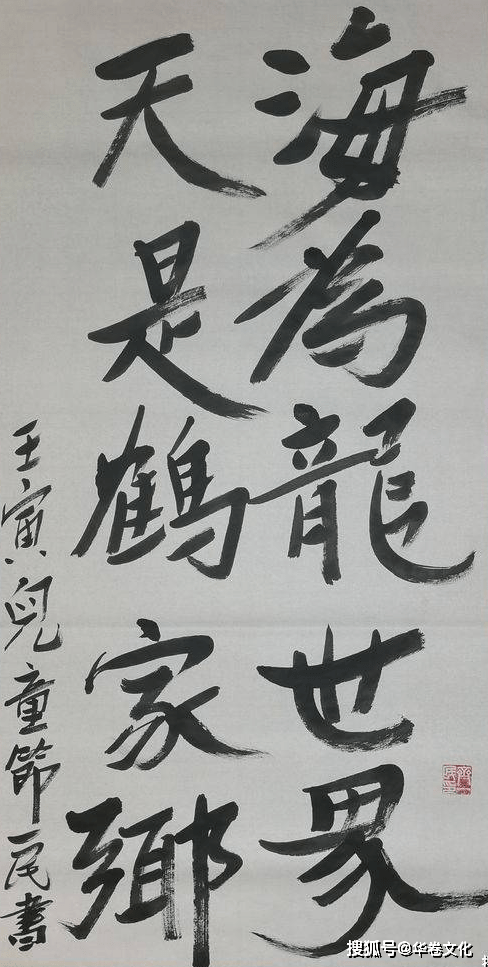 海為龍世界
天是鶴家鄉
壬寅兒童節一民書
搜狐号@华卷文化